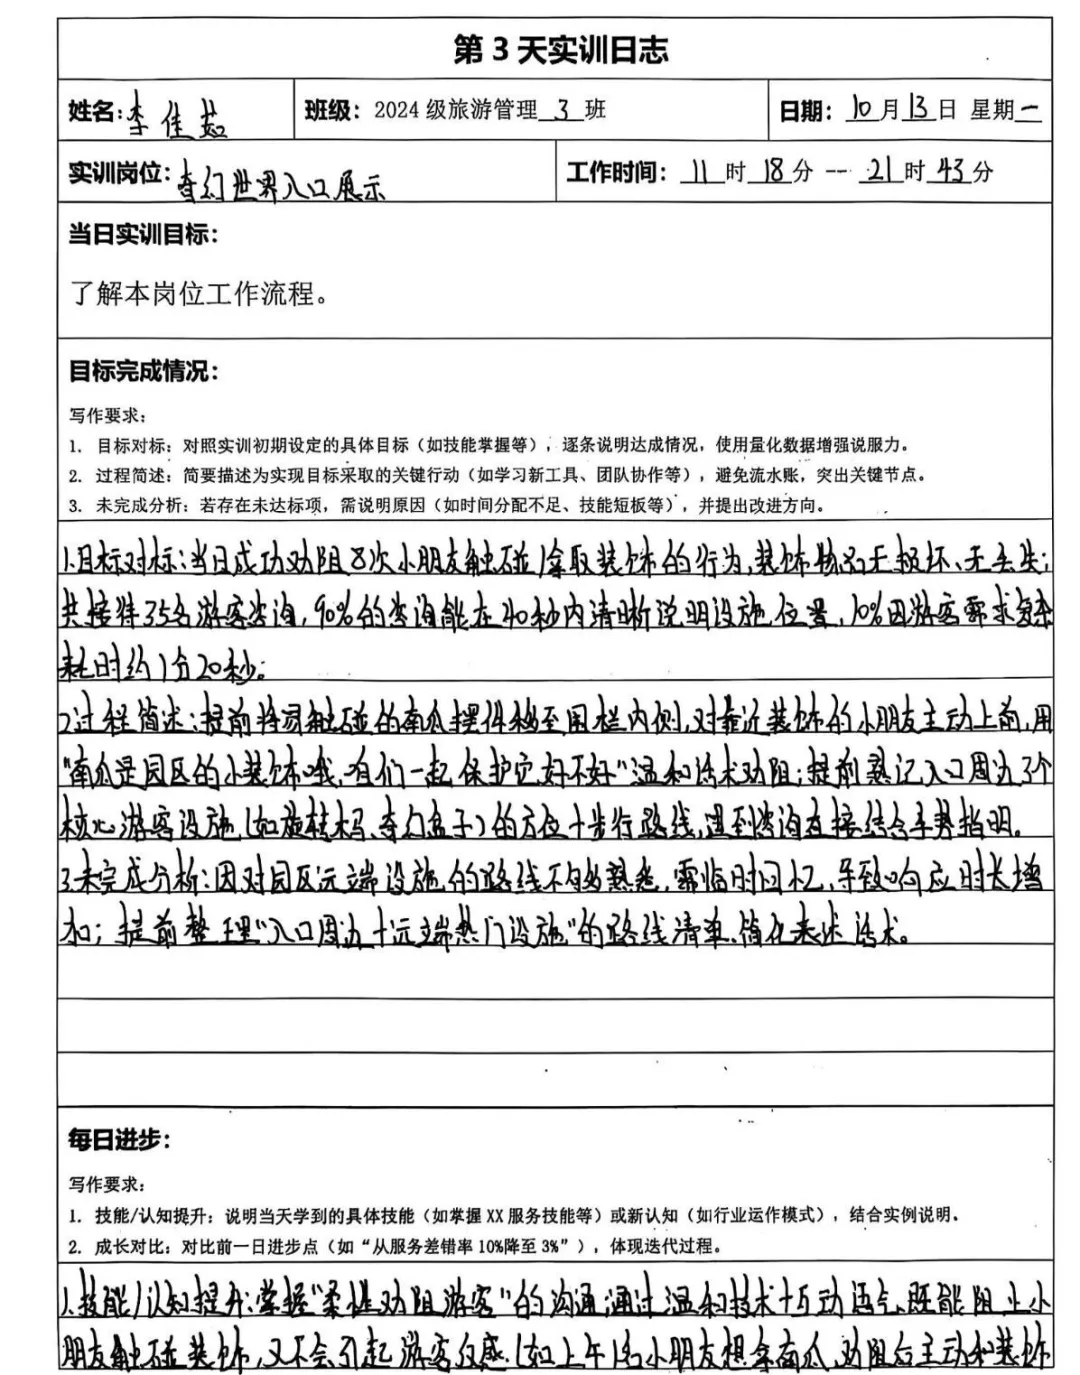 第 3 天实训日志
姓名：李佳茹 班级：2024 级旅游管理 3 班 日期：10 月 13 日 星期一
实训岗位：奇幻世界入口展示 工作时间：11 时 18 分 -- 21 时 43 分
当日实训目标：
了解本岗位工作流程。
目标完成情况：
写作要求：
1. 目标对标：对照实训初期设定的具体目标（如技能掌握等），逐条说明达成情况，使用量化数据增强说服力。
2. 过程简述：简要描述为实现目标采取的关键行动（如学习新工具、团队协作等），避免流水账，突出关键节点。
3. 未完成分析：若存在未达标项，需说明原因（如时间分配不足、技能短板等），并提出改进方向。
1.目标对标：当日成功劝阻8次小朋友触碰/拿取装饰的行为，装饰物品无损坏、无丢失；
共接待35名游客咨询，90%的咨询能在40秒内清晰说明设施位置，10%因游客需求复杂
耗时约1分20秒。
2.过程简述：提前将易触碰的南瓜摆件移至围栏内侧，对靠近装饰的小朋友主动上前，用
“南瓜是园区的小装饰哦，咱们一起保护它好不好”温和话术劝阻；提前熟记入口周边3个
核心游客设施（如旋转木马、奇幻盒子）的方位+步行路线，遇到咨询直接结合手势指明。
3.未完成分析：因对园区远端设施的路线不够熟悉，需临时回忆，导致响应时长增
加；提前整理“入口周边+远端热门设施”的路线清单、简化表述话术。
每日进步：
写作要求：
1. 技能/认知提升：说明当天学到的具体技能（如掌握 XX 服务技能等）或新认知（如行业运作模式），结合实例说明。
2. 成长对比：对比前一日进步点（如“从服务差错率 10%降至 3%”），体现迭代过程。
1.技能/认知提升：掌握“柔性劝阻游客”的沟通，通过温和技术+互动语气，既能阻止小
朋友触碰装饰，又不会引起游客反感（如上午1名小朋友想拿南瓜，劝阻后主动和装饰